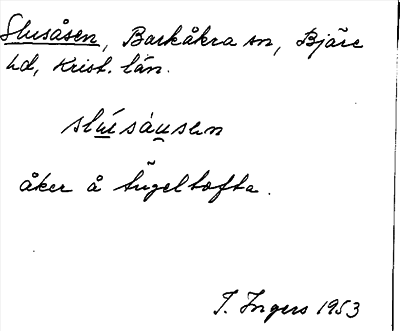 Slusåsen, Barkåkra sn, Bjäre
hd, Krist. län.
slúsàusen
åker å Tŭgeltofta.
I. Ingers 1953